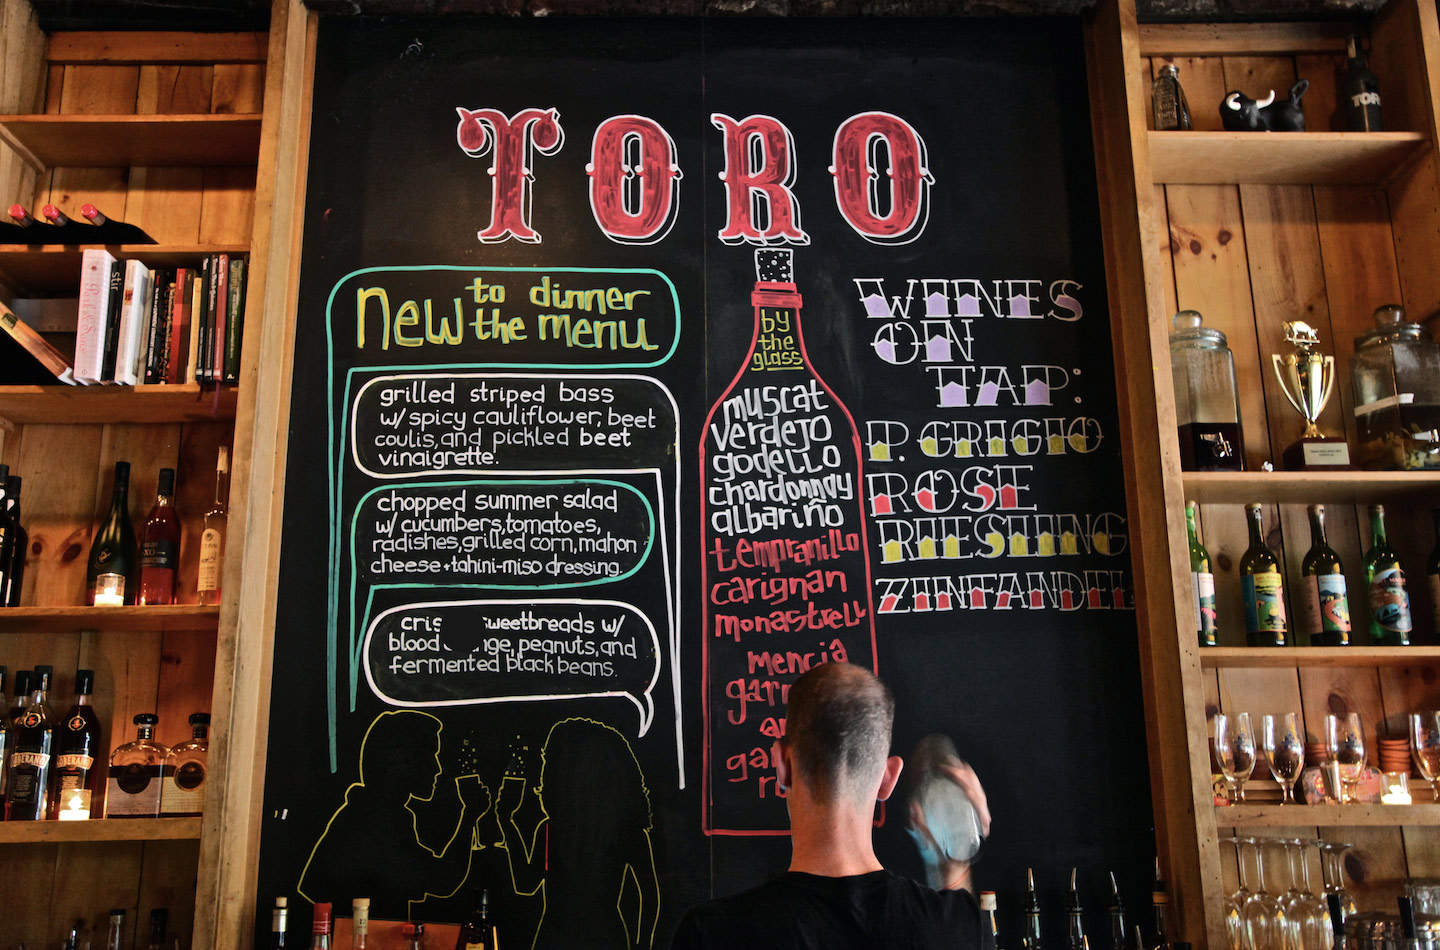 TORO
new to dinner
the menu
grilled striped bass
w/ spicy cauliflower, beet
coulis, and pickled beet
vinaigrette.
chopped summer salad
w/ cucumbers, tomatoes,
radishes, grilled corn, mahon
cheese + tahini-miso dressing.
w/
blood peanuts, and
fermented black beans.
by
the
glass
muscat
verdejo
godello
chardonnay
albariño
tempranillo
carignan
monastrell
mencia
WINES
ON
TAP:
P. GRIGIO
ROSE
RIESLING
ZINFANDEL